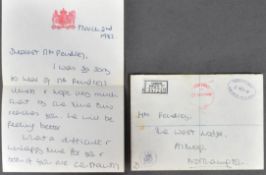 March 2nd
1982.
Dearest Mrs Pendrey,
I was so sorry
to hear of Mr Pendrey's
illness & hope very much
that by the time this
reaches you he will be
feeling better
What a difficult &
unhappy time for you &
both of you are constantly
Mrs Pendrey,
The West Lodge,
Althorp,
Northampton.